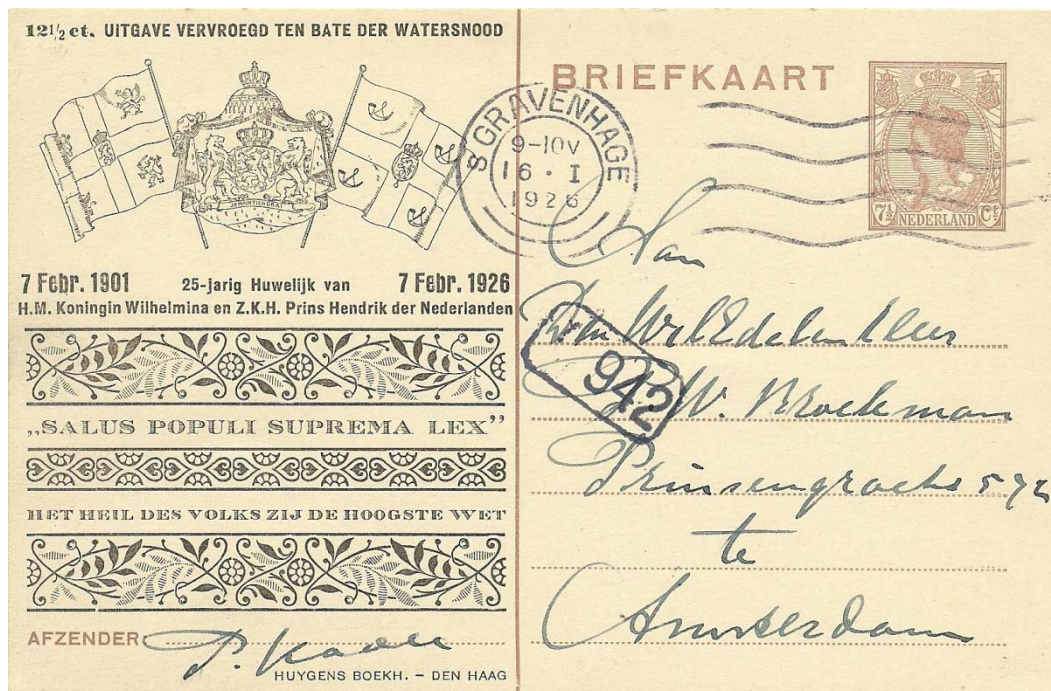 12½ ct. UITGAVE VERVROEGD TEN BATE DER WATERSNOOD
JE MAINTIENDRAI
7 Febr. 1901 25-jarig Huwelijk van 7 Febr. 1926
H.M. Koningin Wilhelmina en Z.K.H. Prins Hendrik der Nederlanden
„SALUS POPULI SUPREMA LEX”
HET HEIL DES VOLKS ZIJ DE HOOGSTE WET
AFZENDER
HUYGENS BOEKH. – DEN HAAG
BRIEFKAART
'S GRAVENHAGE
9-10V
16 · I
1926
7½ NEDERLAND Ct
Aan
Den WelEdelen Heer
W. Broekman
942
Prinsengracht
te
Amsterdam